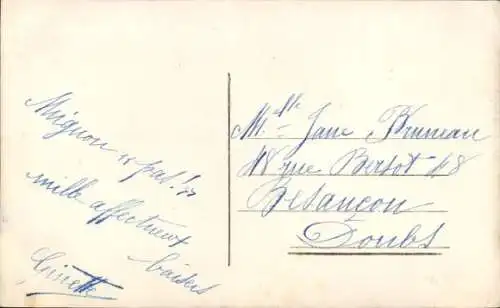 Mignon "pas!"
mille affectueux
baisers
Ginette
Mlle Jane Bruneau
48 rue Bersot 48
Besançon
Doubs